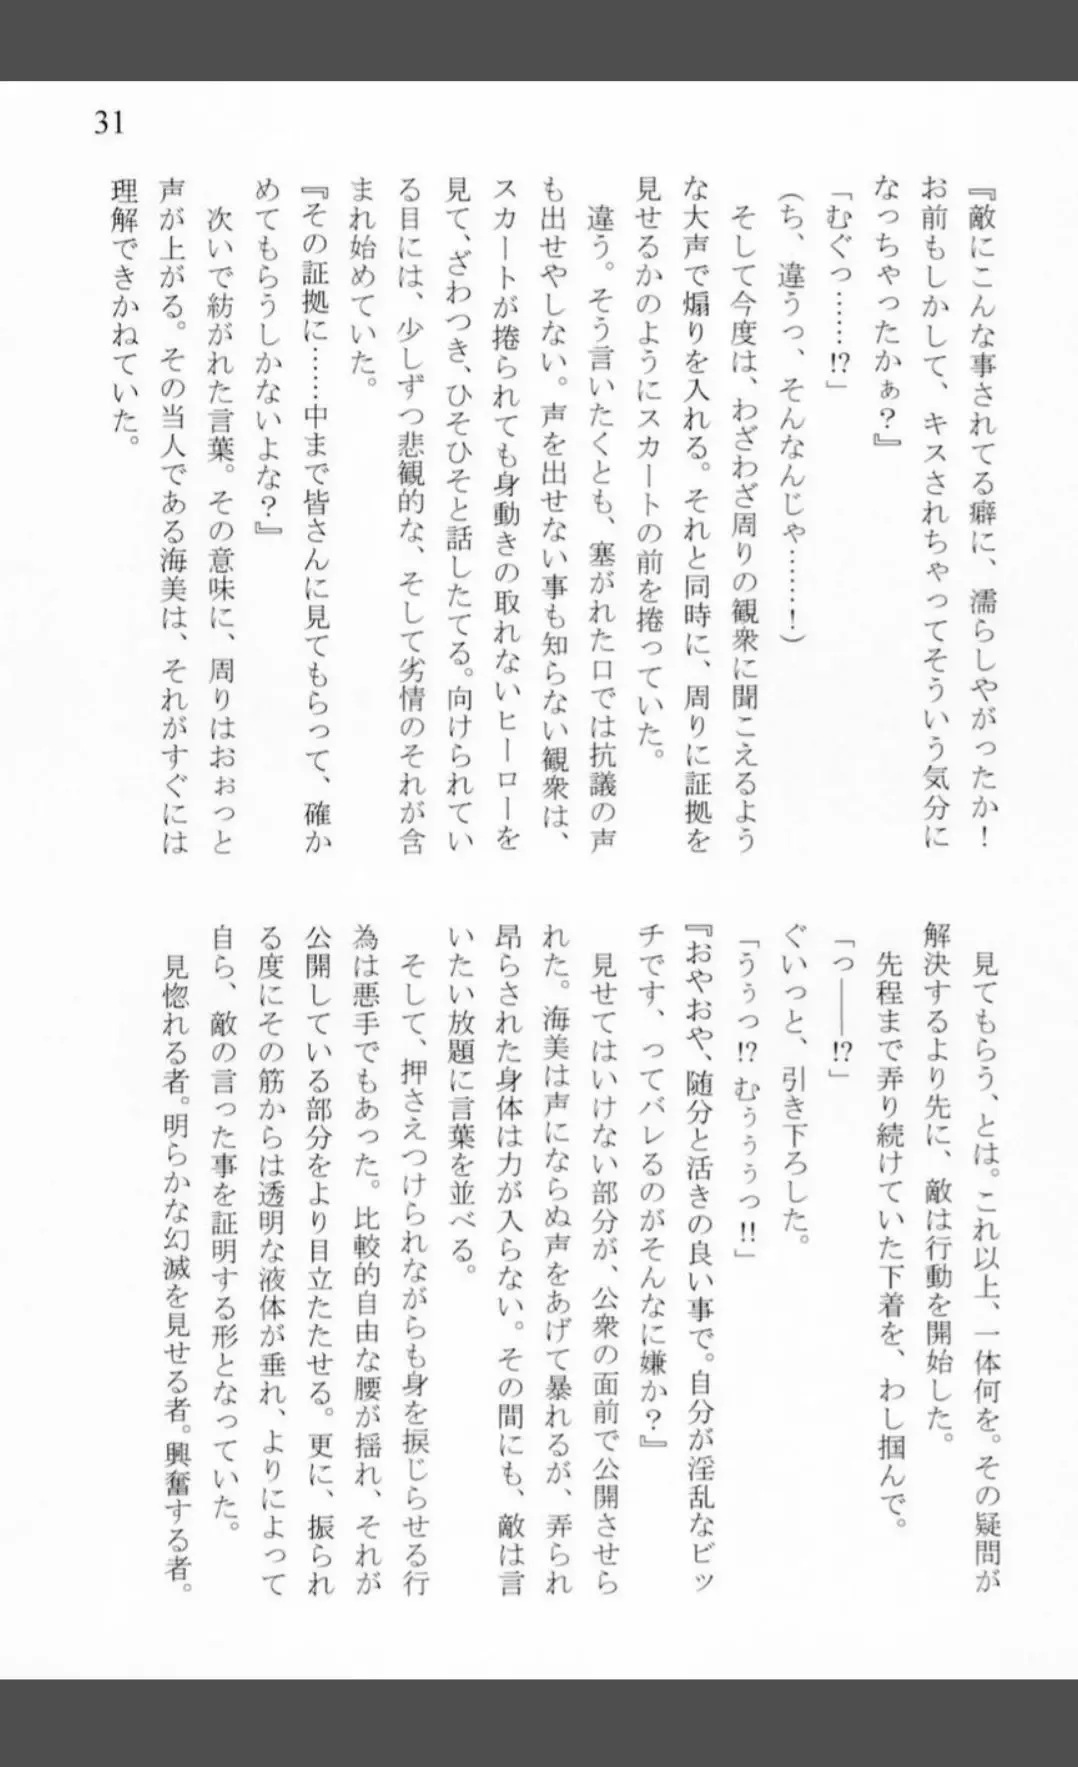 31
『敵にこんな事されてる癖に、濡らしやがったか！
お前もしかして、キスされちゃってそういう気分に
なっちゃったかぁ？』
「むぐっ……!?」
(ち、違うっ、そんなんじゃ……！)
そして今度は、わざわざ周りの観衆に聞こえるよう
な大声で煽りを入れる。それと同時に、周りに証拠を
見せるかのようにスカートの前を捲っていた。
違う。そう言いたくとも、塞がれた口では抗議の声
も出せやしない。声を出せない事も知らない観衆は、
スカートが捲られても身動きの取れないヒーローを
見て、ざわつき、ひそひそと話したてる。向けられてい
る目には、少しずつ悲観的な、そして劣情のそれが含
まれ始めていた。
『その証拠に……中まで皆さんに見てもらって、確か
めてもらうしかないよな？』
次いで紡がれた言葉。その意味に、周りはおぉっと
声が上がる。その当人である海美は、それがすぐには
理解できかねていた。
見てもらう、とは。これ以上、一体何を。その疑問が
解決するより先に、敵は行動を開始した。
先程まで弄り続けていた下着を、わし掴んで。
「っ――!?」
ぐいっと、引き下ろした。
「うぅっ!? むぅぅぅっ!!」
『おやおや、随分と活きの良い事で。自分が淫乱なビッ
チです、ってバレるのがそんなに嫌か？』
見せてはいけない部分が、公衆の面前で公開させら
れた。海美は声にならぬ声をあげて暴れるが、弄られ
昂らされた身体は力が入らない。その間にも、敵は言
いたい放題に言葉を並べる。
そして、押さえつけられながらも身を捩じらせる行
為は悪手でもあった。比較的自由な腰が揺れ、それが
公開している部分をより目立たせる。更に、振られ
る度にその筋からは透明な液体が垂れ、よりによって
自ら、敵の言った事を証明する形となっていた。
見惚れる者。明らかな幻滅を見せる者。興奮する者。